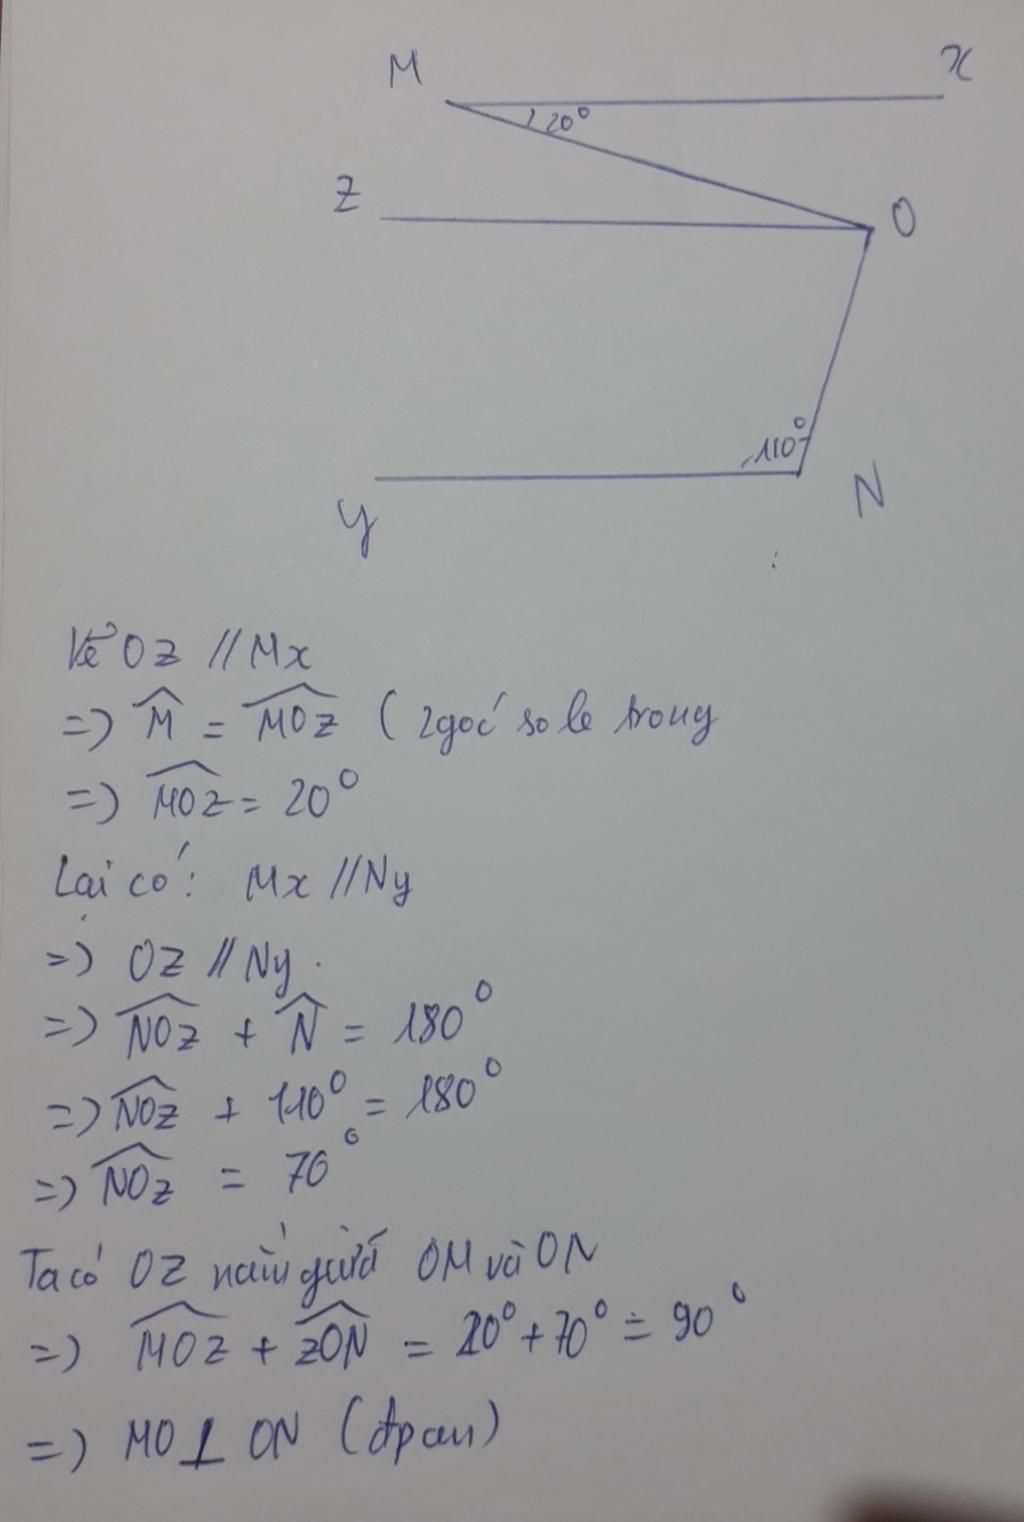 M x
20°
Z O
110°
y N
Vẽ Oz // Mx
=> M̂ = MOz ( 2góc so le trong
=> MOz = 20°
Lại có: Mx // Ny
=> OZ // Ny.
=> NOz + N̂ = 180°
=> NOz + 110° = 180°
=> NOz = 70°
Ta có OZ nằm giữa OM và ON
=> MOz + zON = 20° + 70° = 90°
=> MO ⊥ ON (đpcm)